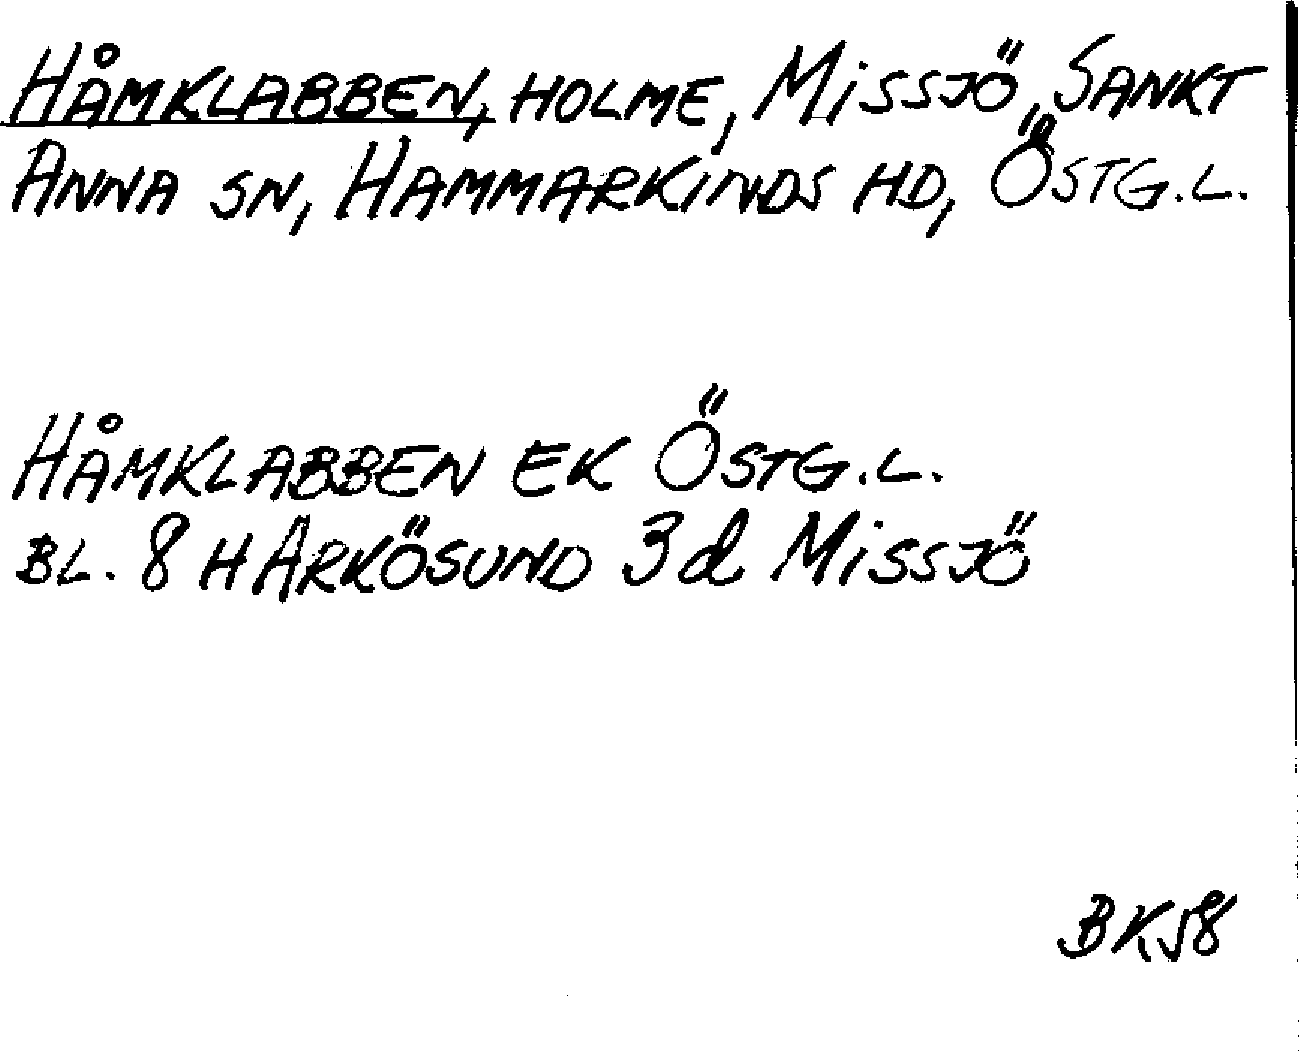 HÅMKLABBEN, HOLME, MiSSJÖ, SANKT
ANNA SN, HAMMARKiNDS HD, ÖSTG.L.
HÅMKLABBEN EK ÖSTG.L.
BL. 8 H ARKÖSUND 3d MiSSJÖ
BK58